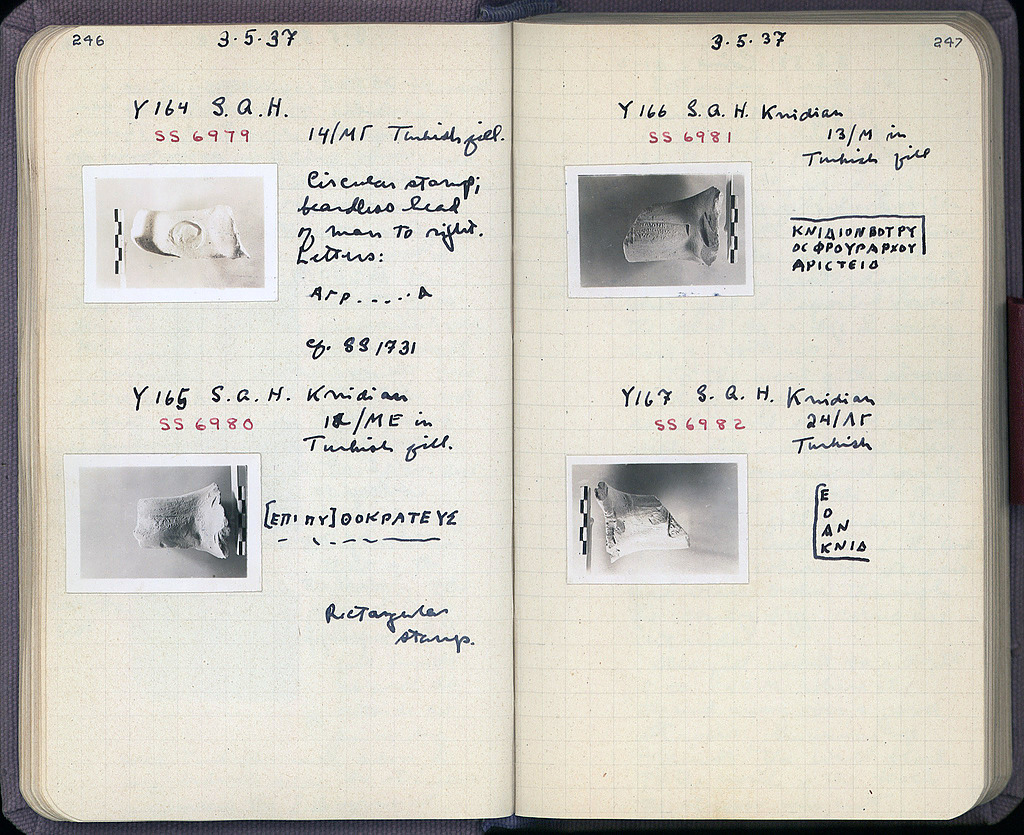 246
3·5·37
Y 164 S.A.H.
SS 6979
14/ΜΓ Turkish fill.
Circular stamp;
beardless head
of man to right.
Letters:
Αγρ.....Α
cf. SS 1731
Y 165 S.A.H. Knidian
SS 6980
/ΜΕ in
Turkish fill.
[ΕΠΙ ΠΥ]ΘΟΚΡΑΤΕΥΣ
Rectangular
stamp.
3·5·37
247
Y 166 S.A.H. Knidian
SS 6981
13/Μ in
Turkish fill
ΚΝΙΔΙΟΝΒΟΤΡΥ
ΟϹΦΡΟΥΡΑΡΧΟΥ
ΑΡΙϹΤΕΙΔ
Y 167 S.A.H. Knidian
SS 6982
24/ΛΓ
Turkish
Ε
Ο
ΑΝ
ΚΝΙΔ